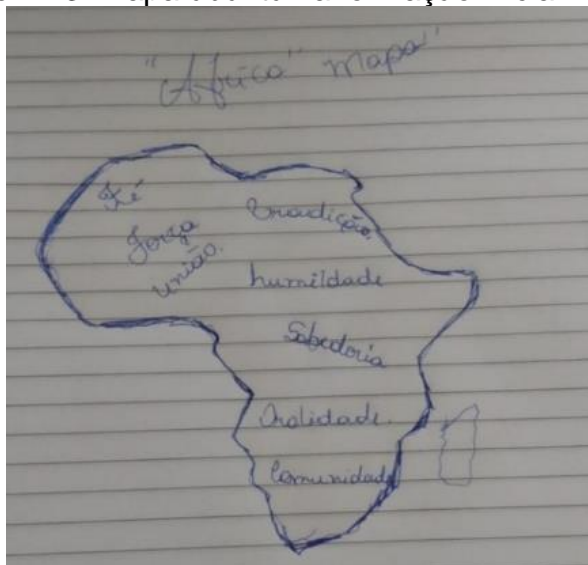 "África" Mapa"
Fé
Força
união.
Tradição.
humildade
Sabedoria
Oralidade.
Comunidade